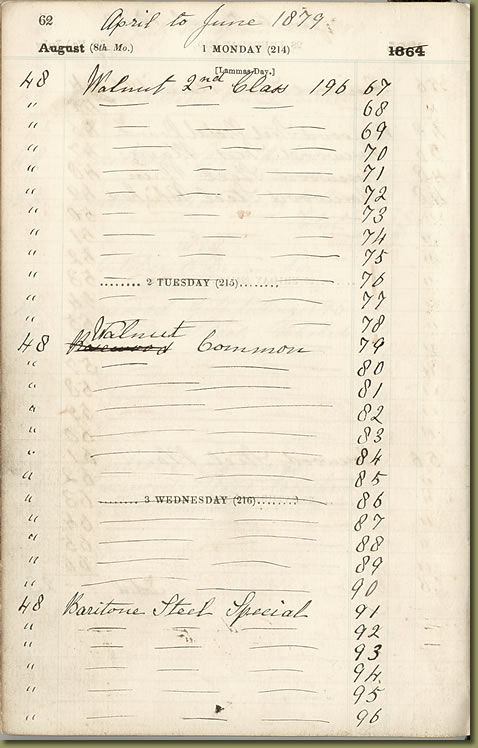 62 April to June 1879
August (8th Mo.) 1 MONDAY (214) 1864
[Lammas Day.]
48 Walnut 2nd Class 196 67
" 68
" 69
" 70
" 71
" 72
" 73
" 74
" 75
" ........ 2 TUESDAY (215)........ 76
" 77
" 78
Walnut
48 Rosewood Common 79
" 80
" 81
" 82
" 83
" 84
" 85
" ........ 3 WEDNESDAY (216)........ 86
" 87
" 88
" 89
" 90
48 Baritone Steel Special 91
" 92
" 93
" 94
" 95
" 96